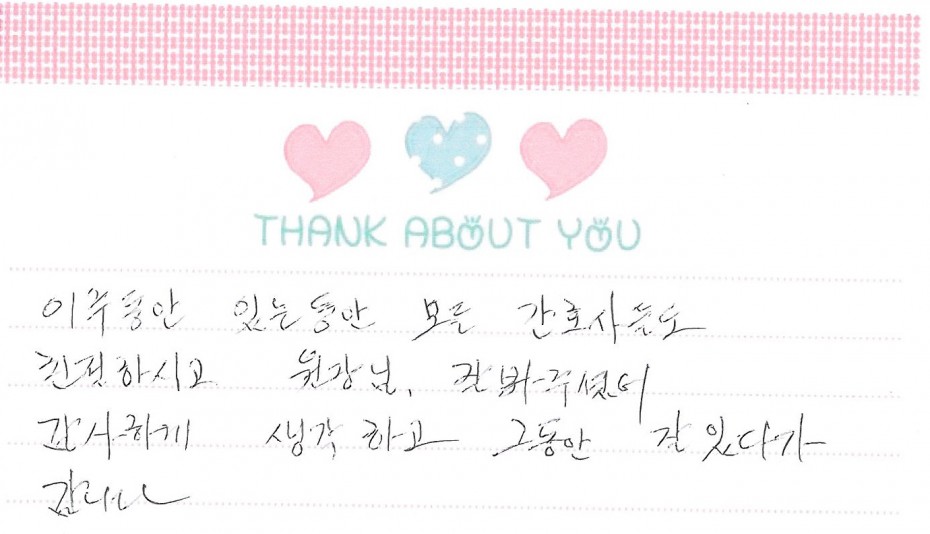 THANK ABOUT YOU
이주동안 있는동안 모든 간호사들도
친절하시고 원장님, 잘봐주셨어
감사하게 생각하고 그동안 잘있다가
갑니다